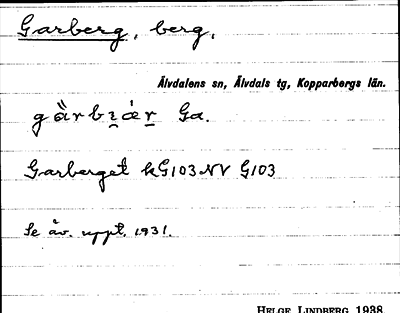 Garberg, berg,
Älvdalens sn, Älvdals tg, Kopparbergs län.
Ga.
Garberget kG103NV G103
Se äv. uppt. 1931.
HELGE LINDBERG 1938.